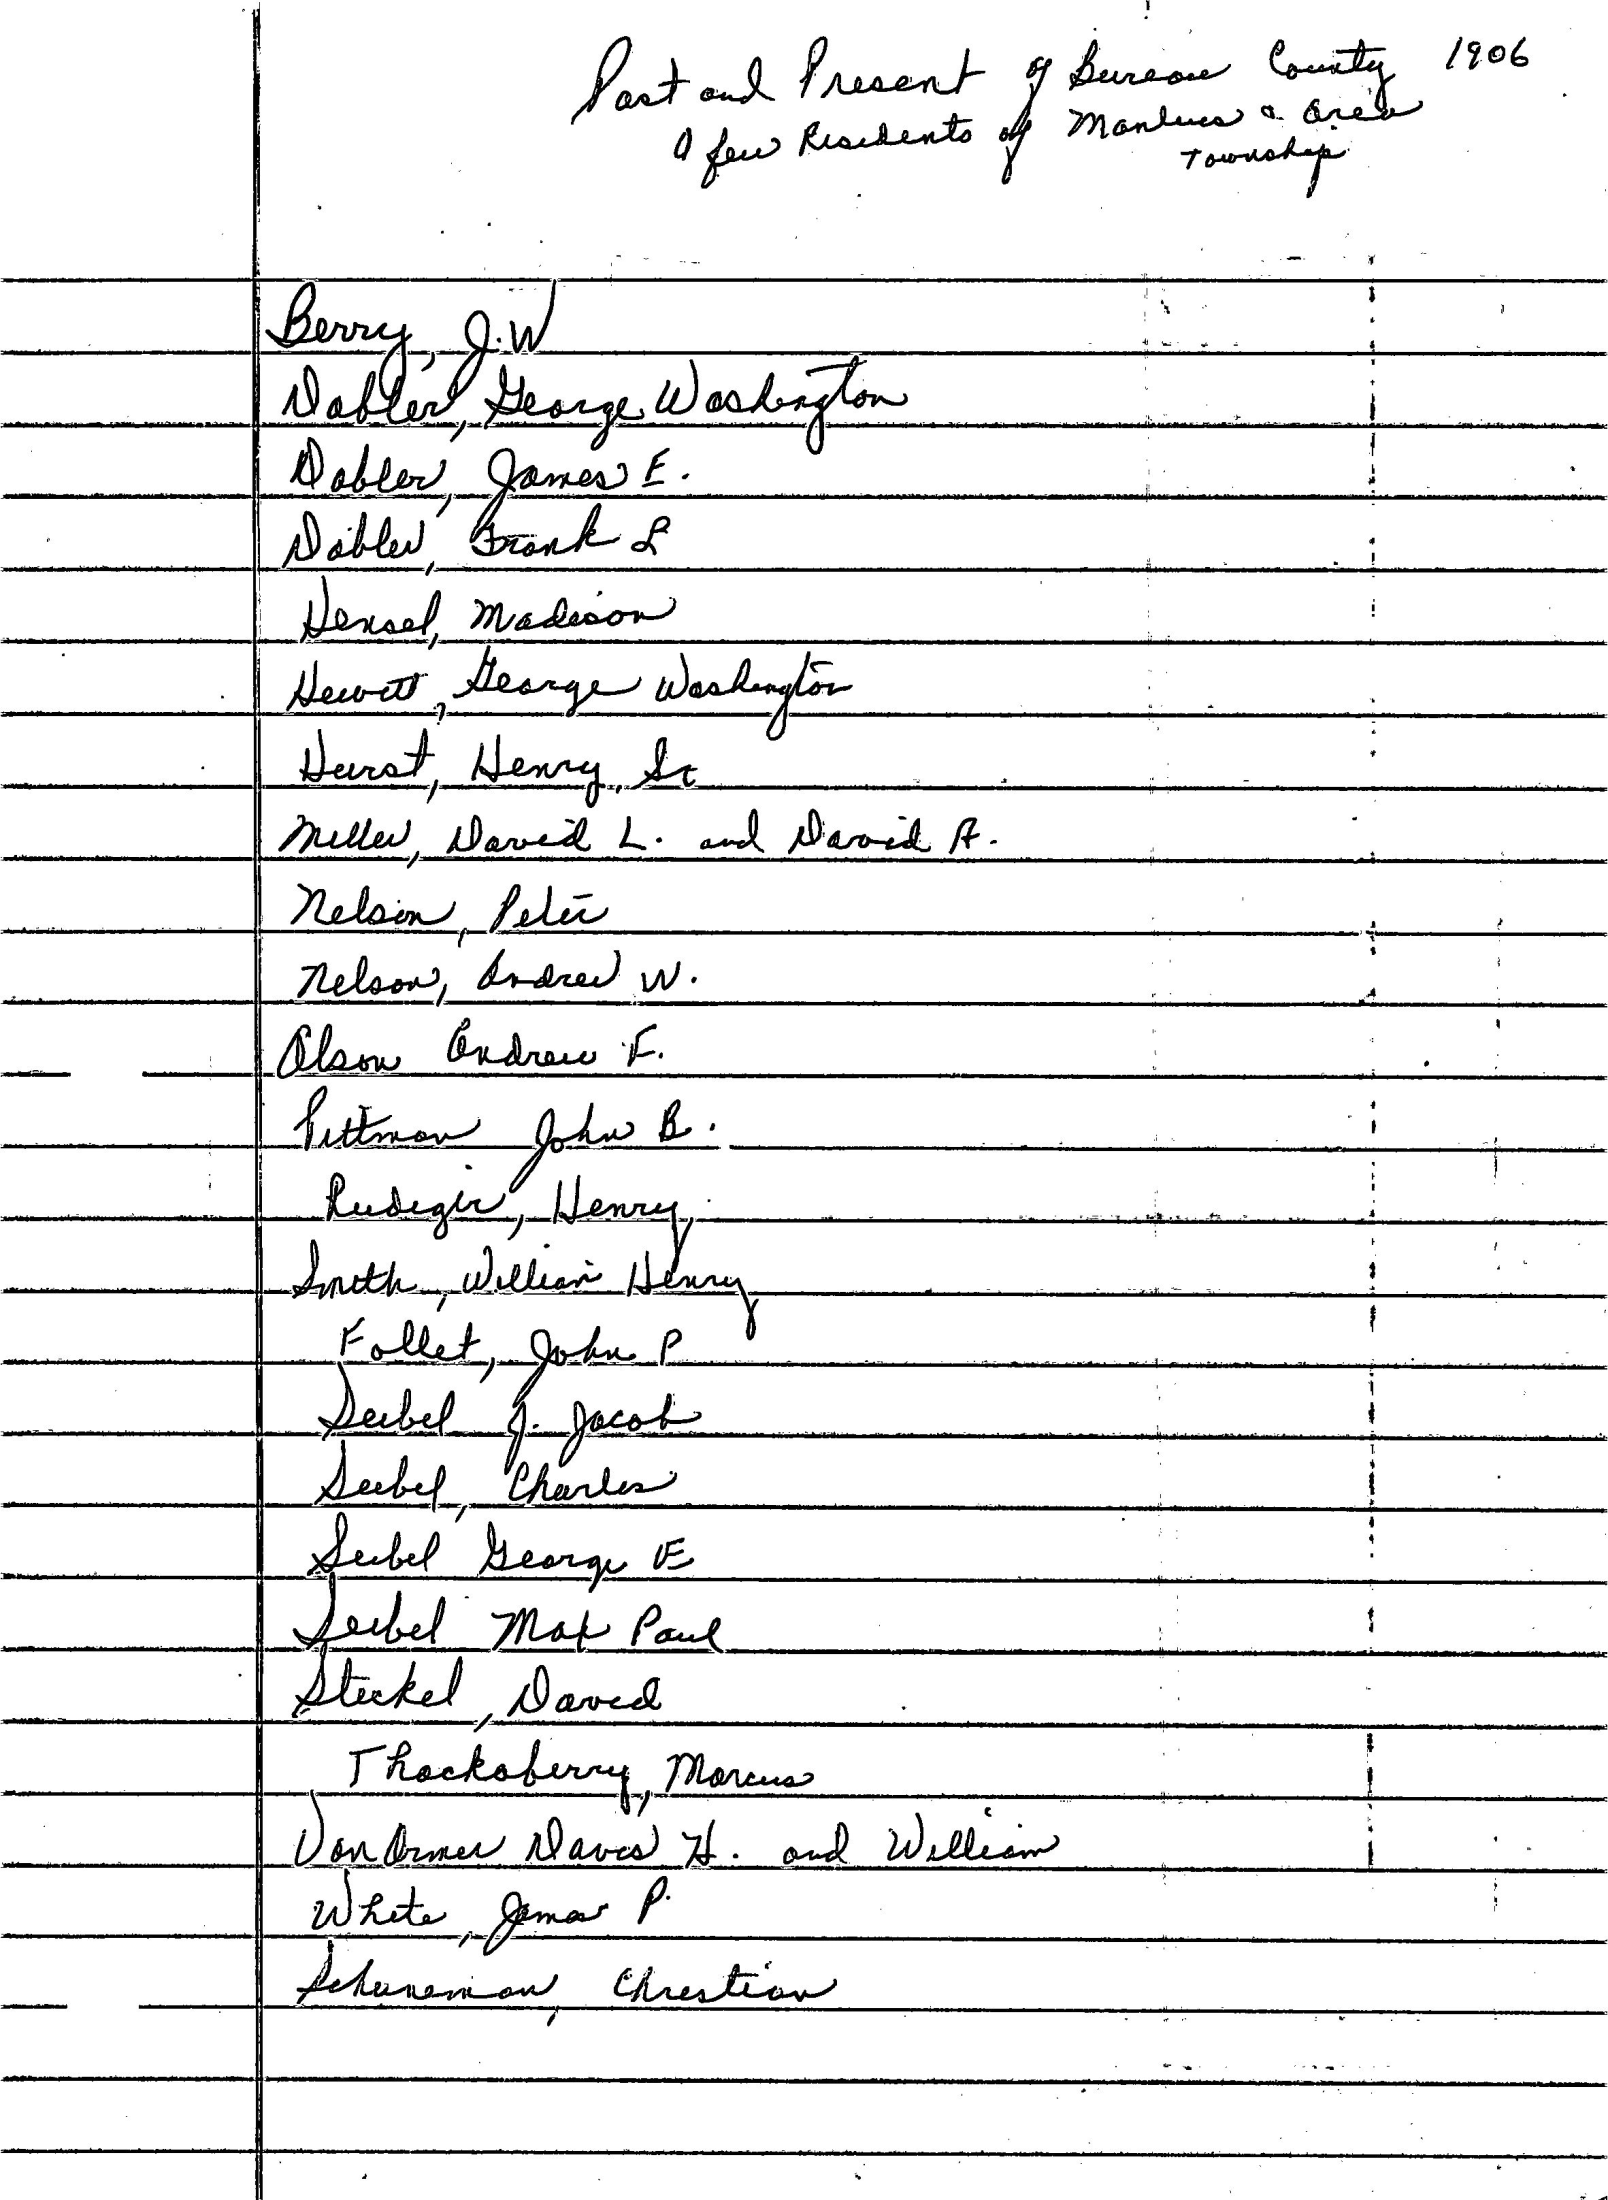 Past and Present of Bureau County 1906
A few Residents of Manlius & Area
Township
Berry, J.W
Dabler, George Washington
Dabler, James E.
Dabler, Frank L
Hensel, Madison
Hewitt, George Washington
Hurst, Henry, Sr
Miller, David L. and David A.
Nelson, Peter
Nelson, Andrew W.
Olson Andrew F.
Pittman John B.
Rudiger, Henry,
Smith, William Henry
Follet, John P
Seibel J. Jacob
Seibel, Charles
Seibel George E
Seibel Max Paul
Steckel, David
Thackaberry, Marcus
VanOrmer David H. and William
White, James P.
Schuneman, Christian